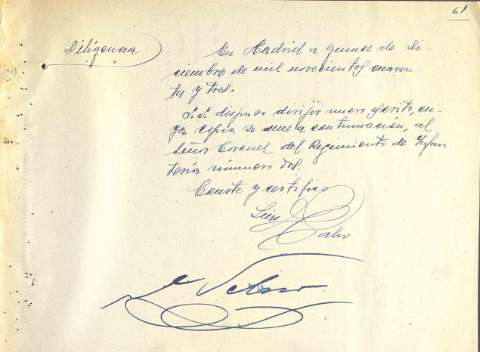 61
Diligencia
En Madrid a quince de Di-
ciembre de mil novecientos cuaren-
ta y tres.
S.S. dispuso dirijir nuevo escrito, cu-
ya copia se une a continuación, al
Señor Coronel del Regimiento de Infan-
tería número dos.
Conste y certifico
Calvo